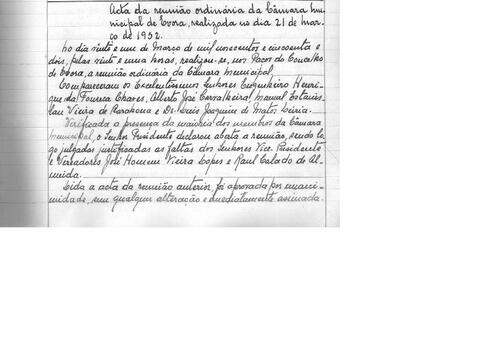 Acta da reunião ordinária da Câmara Mu-
nicipal de Evora, realizada no dia 21 de mar-
ço de 1952.
No dia vinte e um de Março de mil novecentos e cincoenta e
dois, pelas vinte e uma horas, realizou-se, nos Paços do Concelho
de Evora, a reunião ordinária da Câmara Municipal.
Compareceram os Excelentissimos Senhores Engenheiro Henri-
que da Fonseca Chaves, Alberto José Carvalheira, Manuel Estanis-
lau Vieira de Barahona e Dr. Luis Joaquim de Matos
Verificada a presença da maioria dos membros da Câmara
Municipal, o Senhor Presidente declarou aberta a reunião, sendo lo-
go julgadas justificadas as faltas dos Senhores Vice-Presidente
e Vereadores José Homem Vieira Lopes e Raul Calado de Al-
meida.
Lida a acta da reunião anterior, foi aprovada por unani-
midade, sem qualquer alteração e imediatamente assinada.